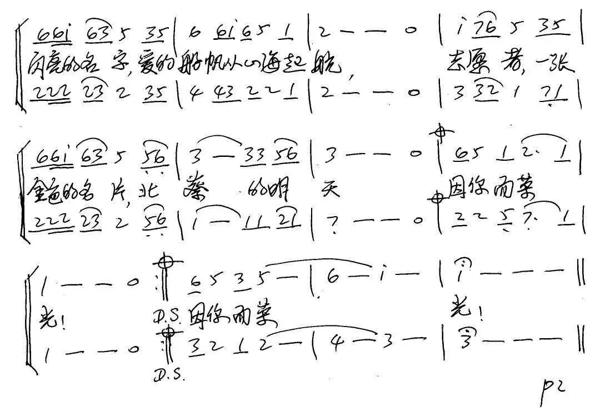 66i 63 5 35 | 6 6i 6 5 1 | 2 — — 0 | i 76 5 35 |
闪亮的名字,爱的船帆从心海起航, 志愿者,一张
222 23 2 35 | 4 43 2 2 1 | 2 — — 0 | 3 32 1 71 |
66i 63 5 56 | 3 — 33 56 | 3 — — 0 | 65 1 2· 1 |
金色的名片,北蔡的明天 因你而荣
222 23 2 56 | 1 — 11 21 | 7 — — 0 | 2 2 5 7· 1 |
1 — — 0 :‖ 6 5 3 5 — | 6 — i — | i — — — ‖
光! D.S. 因你而荣 光!
1 — — 0 :‖ 3 2 1 2 — | 4 — 3 — | 3 — — — ‖
D.S.
P2